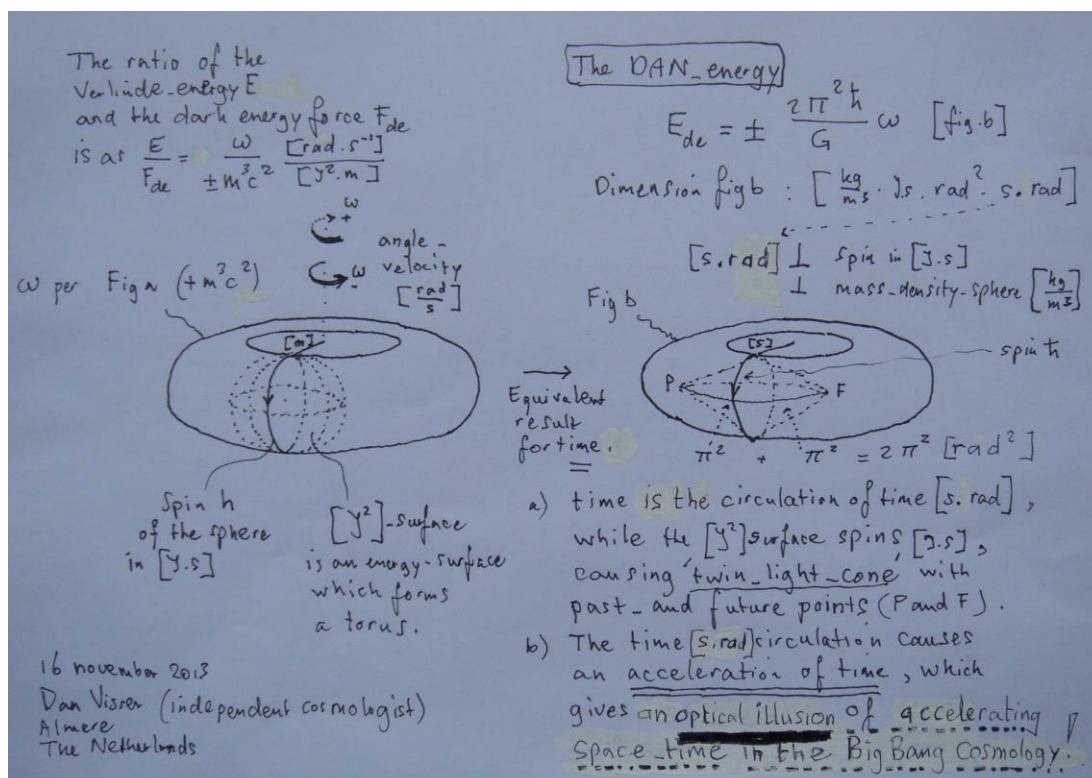 The ratio of the
Verlinde_energy E
and the dark energy force F_de
is as E/F_de = ω/±m³c² [rad.s⁻¹]/[J².m]
ω
+
angle_
velocity
[rad/s]
ω
-
ω per Fig a (+m³c²)
[m]
Spin ħ
of the sphere
in [J.s]
[J²]-surface
is an energy-surface
which forms
a torus.
16 november 2013
Dan Visser (independent cosmologist)
Almere
The Netherlands
→
Equivalent
result
for time.
The DAN_energy
E_de = ± 2π²ħ/G ω [fig.b]
Dimension fig b : [kg/m³ . J.s. rad². s. rad]
[s.rad] ⊥ spin in [J.s]
⊥ mass_density_sphere [kg/m³]
Fig b
[s]
spin ħ
P
F
π² + π² = 2π² [rad²]
a) time is the circulation of time [s. rad],
while the [J²] surface spins [J.s],
causing 'twin_light_cone' with
past_ and future points (P and F).
b) The time [s.rad] circulation causes
an acceleration of time, which
gives an optical illusion of accelerating
Space_time in the Big Bang Cosmology!